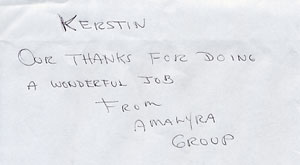 KERSTIN
OUR THANKS FOR DOING
A WONDERFUL JOB
FROM
AMALYRA
GROUP